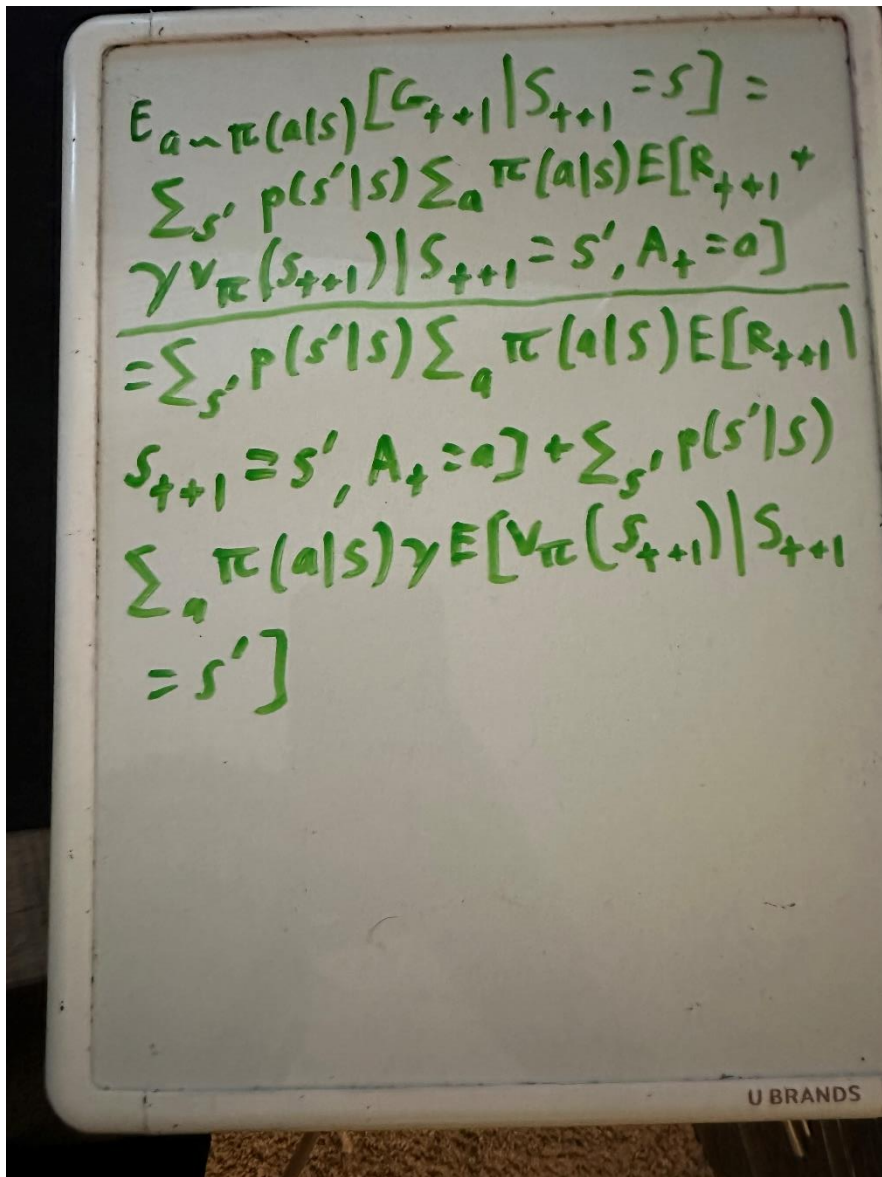 E_{a∼π(a|s)}[G_{t+1}|S_{t+1}=s]=
Σ_{s'} p(s'|s) Σ_a π(a|s)E[R_{t+1}+
γv_π(S_{t+1})|S_{t+1}=s', A_t=a]
=Σ_{s'} p(s'|s) Σ_a π(a|s)E[R_{t+1}|
S_{t+1}=s', A_t=a]+Σ_{s'} p(s'|s)
Σ_a π(a|s)γE[v_π(S_{t+1})|S_{t+1}
=s']
U BRANDS